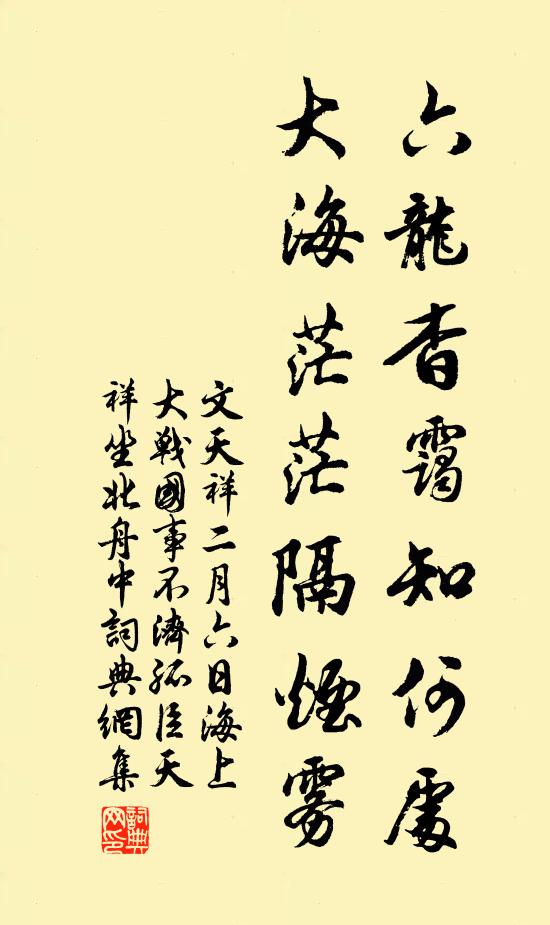 六龍杳靄知何處
大海茫茫隔煙雾
文天祥二月六日海上
大戰國事不濟孤臣天
祥坐北舟中詞典網集
詞典网印